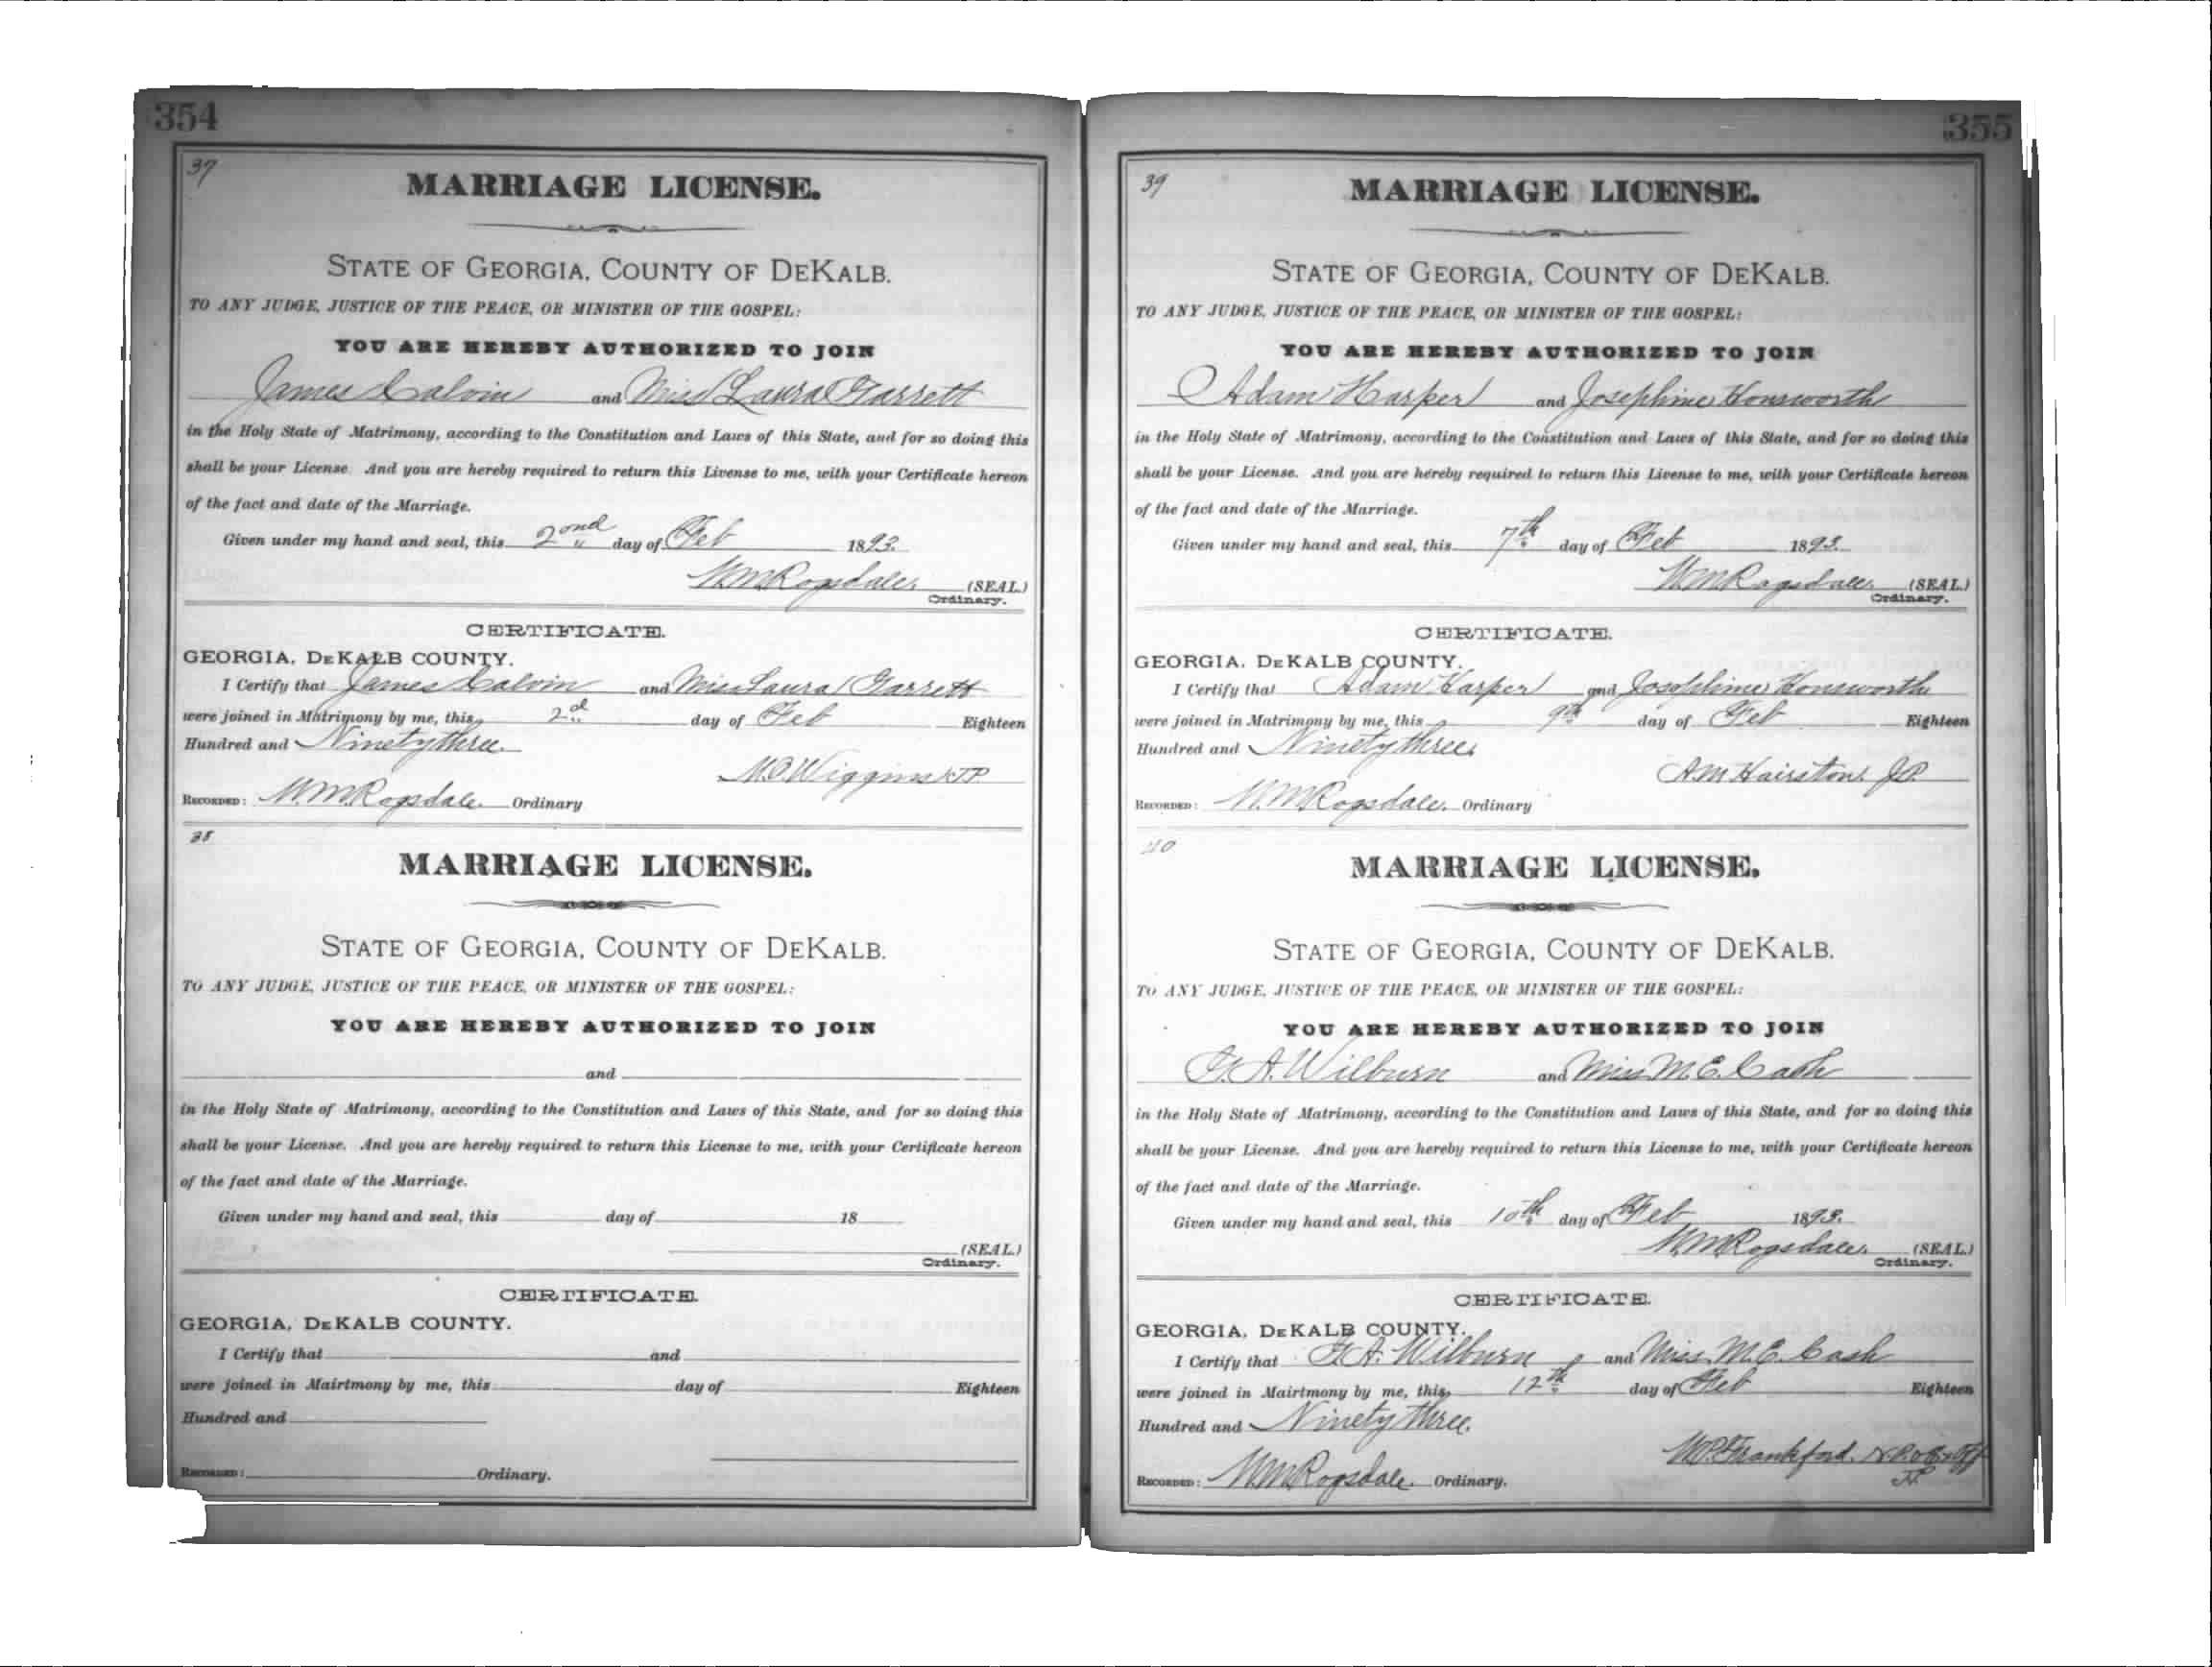 354
37
MARRIAGE LICENSE.
STATE OF GEORGIA, COUNTY OF DEKALB.
TO ANY JUDGE, JUSTICE OF THE PEACE, OR MINISTER OF THE GOSPEL:
YOU ARE HEREBY AUTHORIZED TO JOIN
James Calvin and Miss Laura Garrett
in the Holy State of Matrimony, according to the Constitution and Laws of this State, and for so doing this
shall be your License. And you are hereby required to return this License to me, with your Certificate hereon
of the fact and date of the Marriage.
Given under my hand and seal, this 2nd day of Feb 1893.
W.M. Ragsdale. (SEAL.)
Ordinary.
CERTIFICATE.
GEORGIA, DEKALB COUNTY.
I Certify that James Calvin and Miss Laura Garrett
were joined in Matrimony by me, this 2d day of Feb Eighteen
Hundred and Ninety three.
M.O. Wiggins JP
RECORDED: W.M. Ragsdale. Ordinary
38
MARRIAGE LICENSE.
STATE OF GEORGIA, COUNTY OF DEKALB.
TO ANY JUDGE, JUSTICE OF THE PEACE, OR MINISTER OF THE GOSPEL:
YOU ARE HEREBY AUTHORIZED TO JOIN
and
in the Holy State of Matrimony, according to the Constitution and Laws of this State, and for so doing this
shall be your License. And you are hereby required to return this License to me, with your Certificate hereon
of the fact and date of the Marriage.
Given under my hand and seal, this day of 18
(SEAL.)
Ordinary.
CERTIFICATE.
GEORGIA, DEKALB COUNTY.
I Certify that and
were joined in Mairtmony by me, this day of Eighteen
Hundred and
RECORDED: Ordinary.
355
39
MARRIAGE LICENSE.
STATE OF GEORGIA, COUNTY OF DEKALB.
TO ANY JUDGE, JUSTICE OF THE PEACE, OR MINISTER OF THE GOSPEL:
YOU ARE HEREBY AUTHORIZED TO JOIN
Adam Harper and Josephine Honsworth
in the Holy State of Matrimony, according to the Constitution and Laws of this State, and for so doing this
shall be your License. And you are hereby required to return this License to me, with your Certificate hereon
of the fact and date of the Marriage.
Given under my hand and seal, this 7th day of Feb 1893.
W.M. Ragsdale. (SEAL.)
Ordinary.
CERTIFICATE.
GEORGIA, DEKALB COUNTY.
I Certify that Adam Harper and Josephine Honsworth
were joined in Matrimony by me, this 9th day of Feb Eighteen
Hundred and Ninety three.
A.M. Hairston. JP.
RECORDED: W.M. Ragsdale. Ordinary
40
MARRIAGE LICENSE.
STATE OF GEORGIA, COUNTY OF DEKALB.
TO ANY JUDGE, JUSTICE OF THE PEACE, OR MINISTER OF THE GOSPEL:
YOU ARE HEREBY AUTHORIZED TO JOIN
G.A. Wilburn and Miss M.E. Cash
in the Holy State of Matrimony, according to the Constitution and Laws of this State, and for so doing this
shall be your License. And you are hereby required to return this License to me, with your Certificate hereon
of the fact and date of the Marriage.
Given under my hand and seal, this 10th day of Feb 1893.
W.M. Ragsdale. (SEAL.)
Ordinary.
CERTIFICATE.
GEORGIA, DEKALB COUNTY.
I Certify that G.A. Wilburn and Miss M.E. Cash
were joined in Mairtmony by me, this 12th day of Feb Eighteen
Hundred and Ninety three.
Frankford.
RECORDED: W.M. Ragsdale. Ordinary.